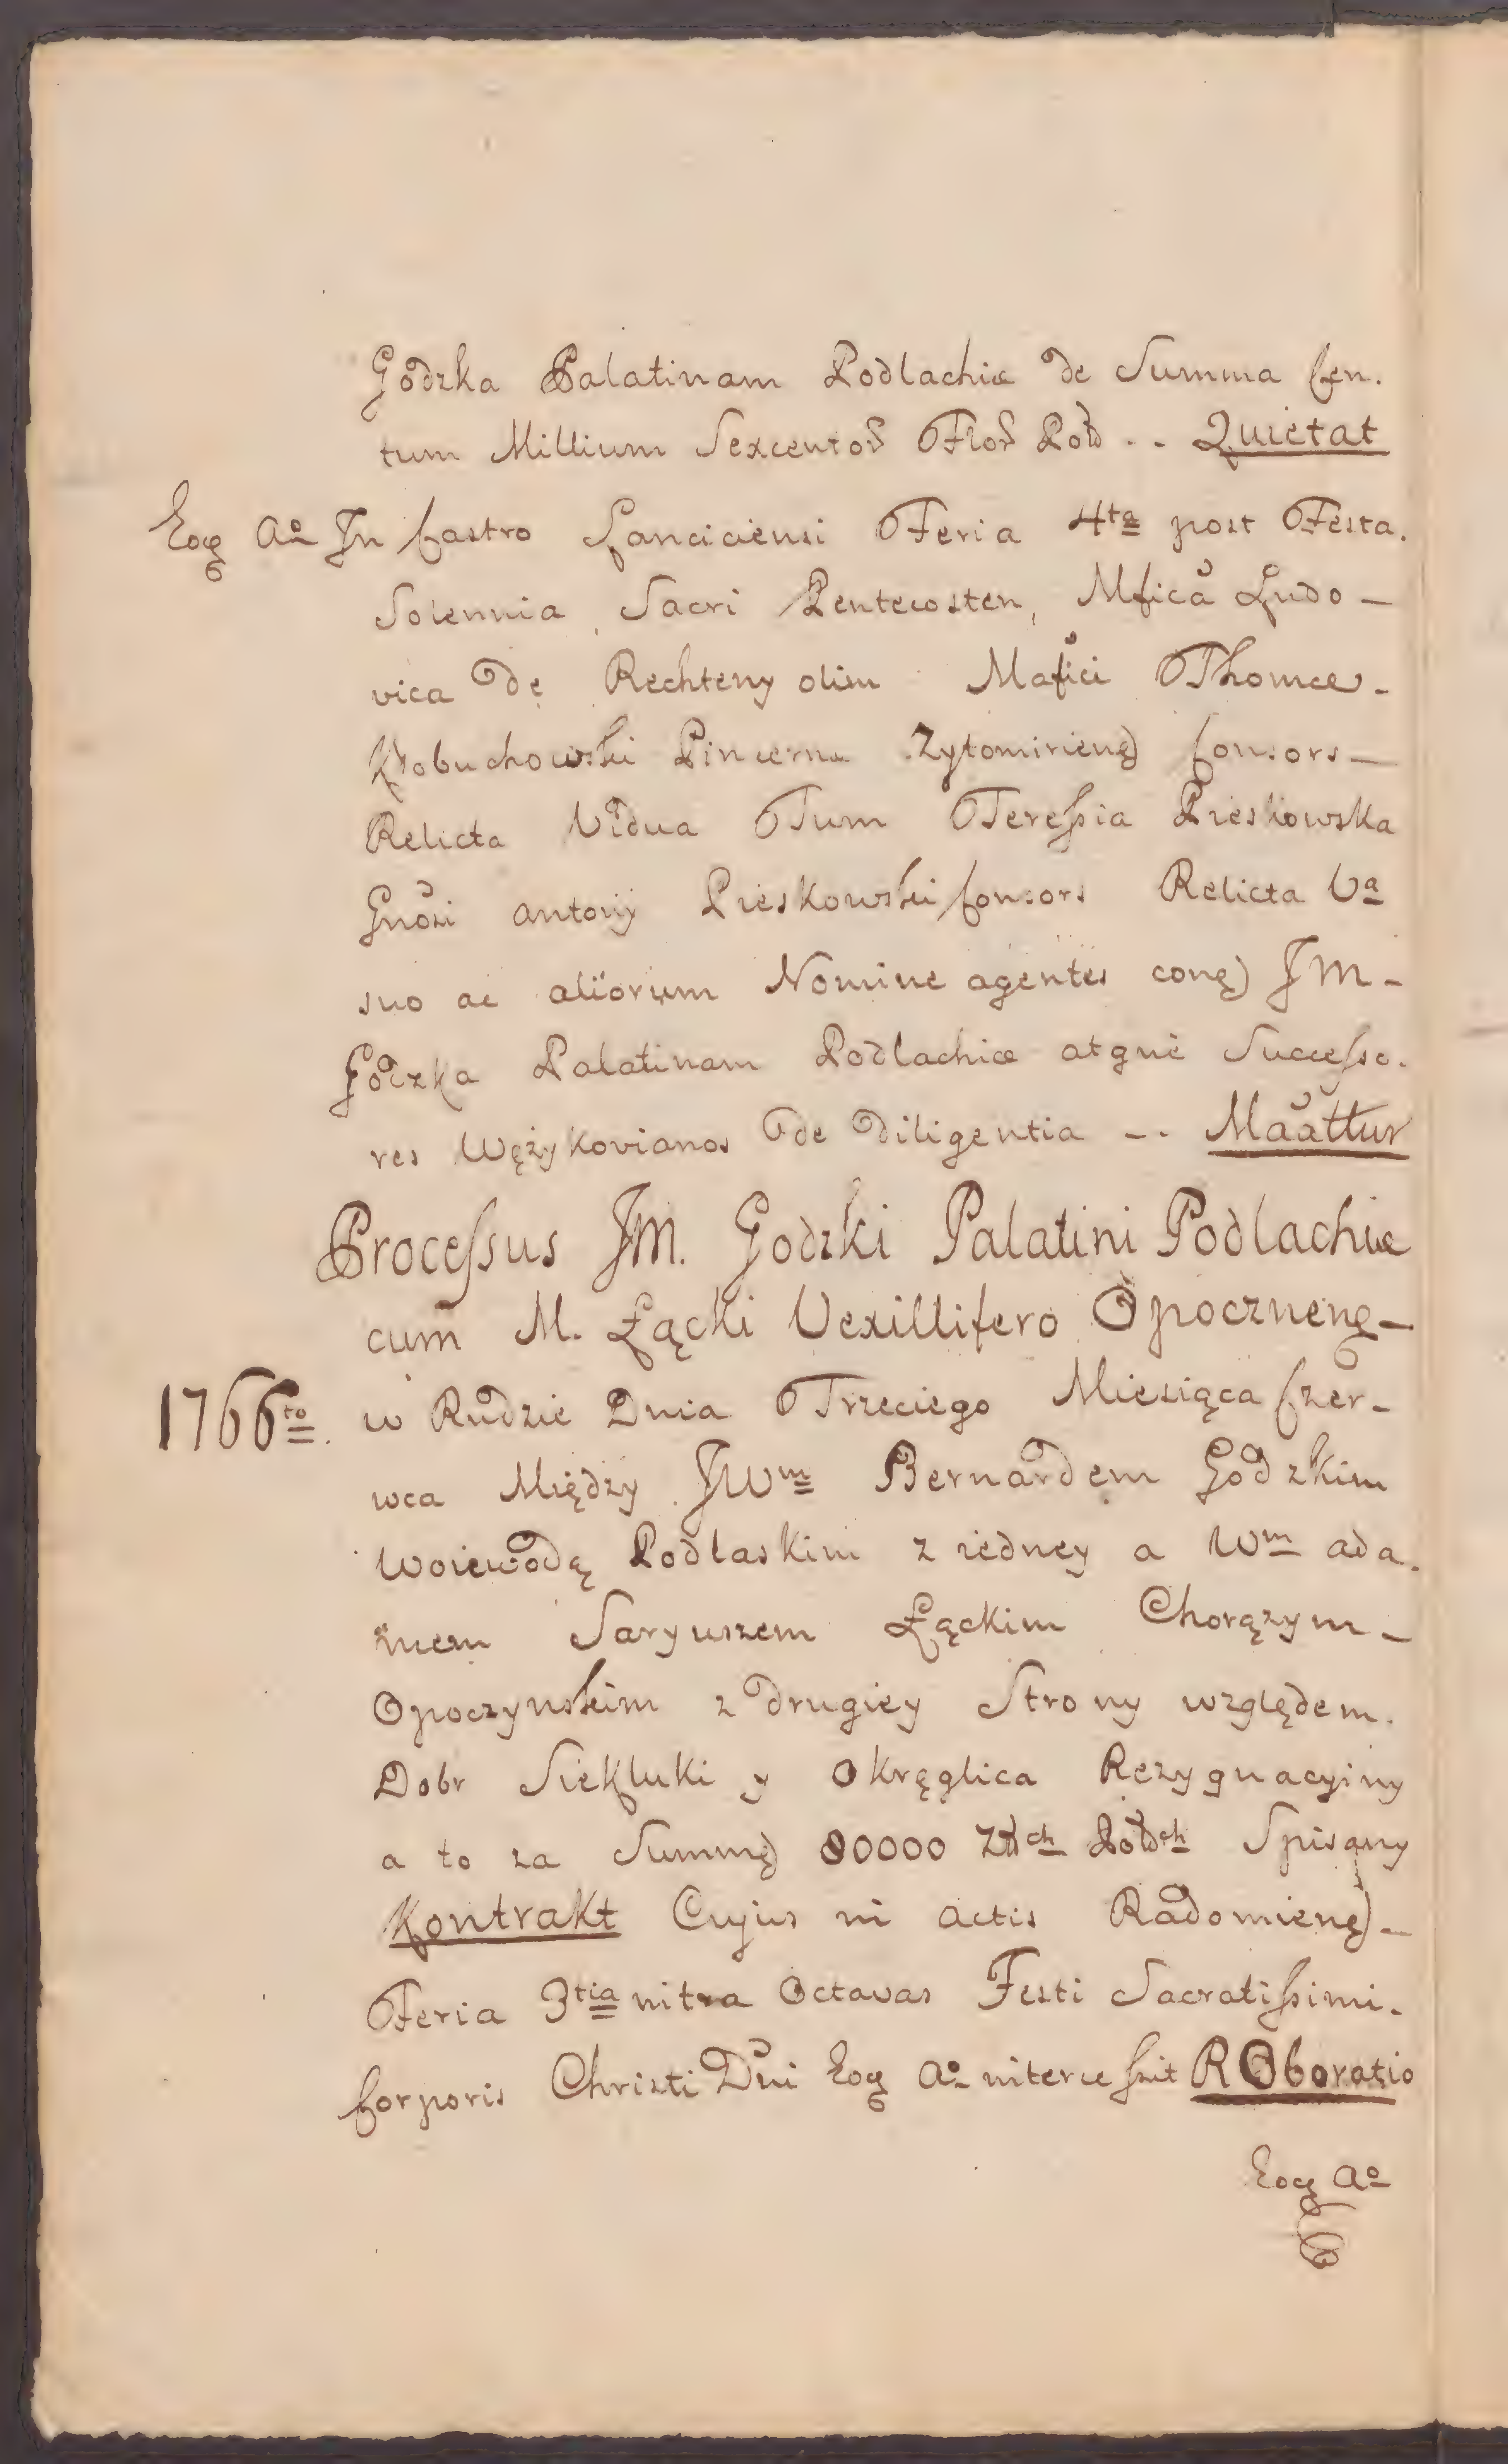 Godzka Palatinam Podlachiæ de Summa Cen.
tum Millium Sexcentoř Fłoř Poł .. Quietat
Eoq̃ Aº In Castro Lanciciensi Feria 4ta post Festa.
Solennia Sacri Pentecosten, Mficã Ludo –
vica de Rechteny olim Mafici Thomæ.
Kłobuchowski Pincernæ Zytomirienę) Consors –
Relicta Vidua Tum Tereßia Pieskowska
Gnõsi Antonij Pieskowski Consors Relicta Va
suo ac aliorum Nomine agentes conę) JM –
Godzka Palatinam Podlachiæ atque Succeßo.
res Wężykovianos de Diligentia -.. Maãttur
Proceßus JM. Godzki Palatini Podlachiæ
cum M. Łącki Vexillifero Opoczneng –
1766to. w Rudzie Dnia Trzeciego Miesiąca Czer –
wca Między JWm Bernardem Godzkim
Woiewodą Podlaskim z iedney a Wm Ada.
mem Saryuszem Łąckim Chorązym –
Opoczynskim z drugiey Strony względem.
Dobr Siekluki y Okręglica Rezygnacyiny
a to za Summę) 80000 Złłch Polłch Spisany
Kontrakt Cujus in Actis Radomienę) –
Feria 3tia intra Octavas Festi Sacratißimi.
Corporis Christi Dñi Eoq̃ Aº interceßit ROboratio
Eoq̃ Aº